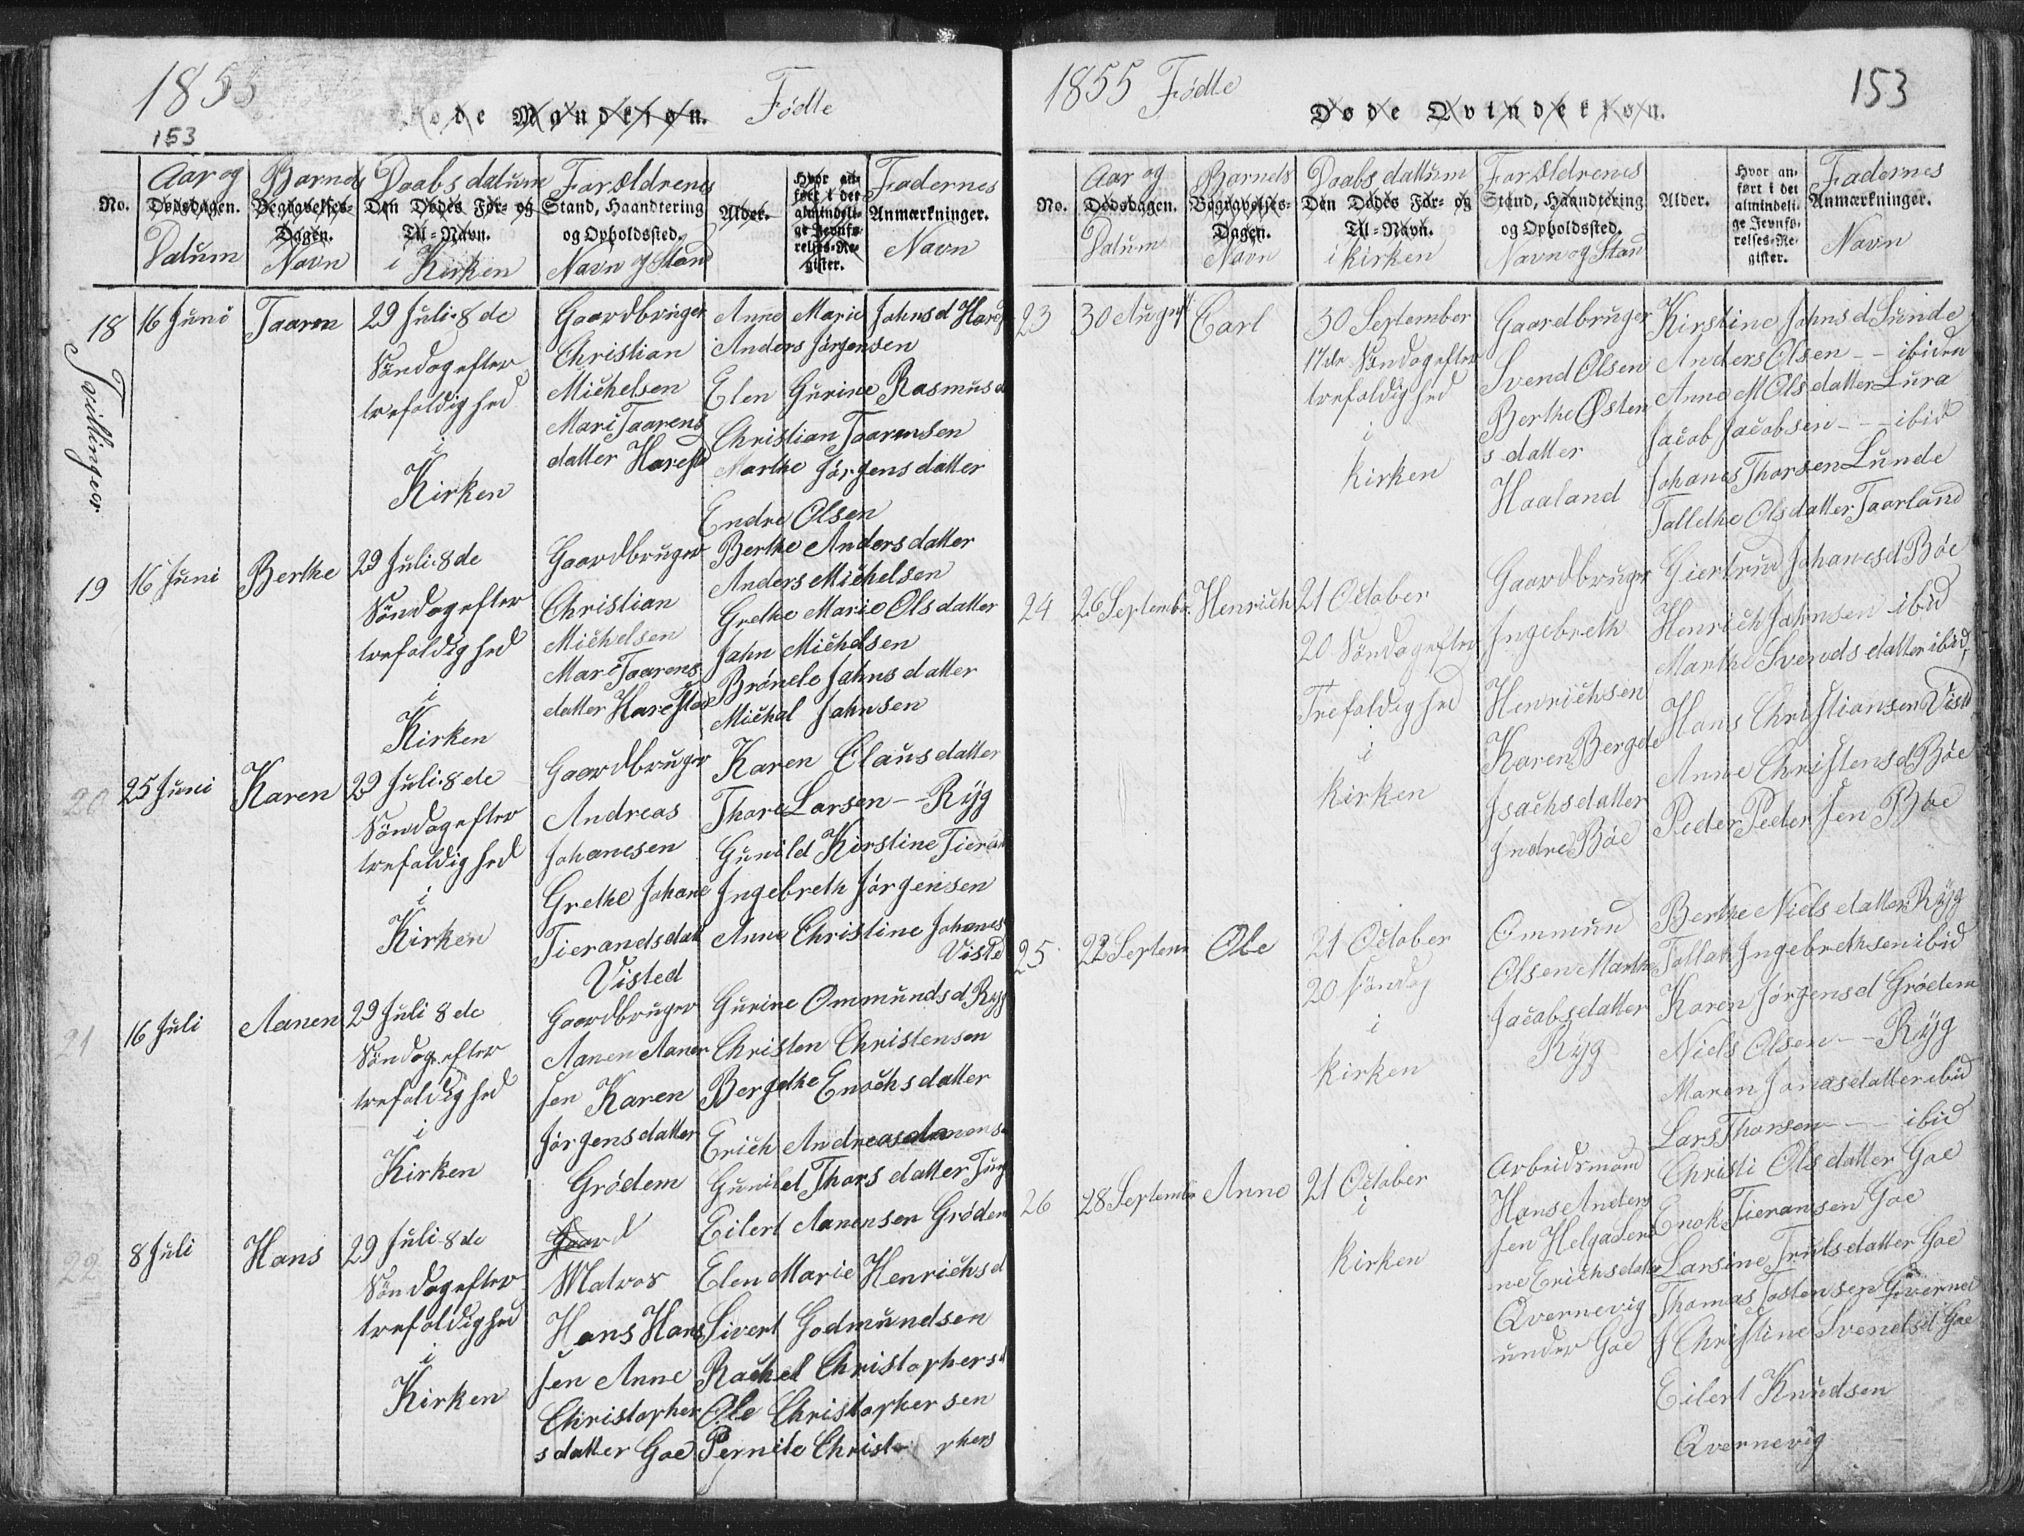 1855
153
Døde Mandkiøn. Fødte
No.
Aar og
Dødsdagen.
Datum
Barnets
Begravelses-
Dagen.
Navn
Daabs datum
Den Dødes For- og
Til-Navn.
i Kirken
Forældrenes
Stand, Haandtering
og Opholdssted.
Navn og Stand
Alder.
Hvor an-
ført i det
almindeli-
ge Jevnfø-
relses-Re-
gister.
Fadernes
Anmærkninger.
Navn
Tvillinger
18
16 Juni
Taaren
29 Juli 8de
Søndag efter
trefoldighed
i
Kirken
Gaardbruger
Christian
Michelsen
Mari Taarens
datter Harestad
Anne Marie Jahnsd
Anders Jørgensen
Elen Gurine Rasmusd
Christian Taarensen
Marthe Jørgensdatter
Endre Olsen
19
16 Juni
Berthe
29 Juli 8de
Søndag efter
trefoldighed
i
Kirken
Gaardbruger
Christian
Michelsen
Mari Taarens
datter Harestad
Berthe Andersdatter
Anders Michelsen
Grethe Marie Olsdatter
Jahn Michelsen
Brønele Jahnsdatter
Michal Jahnsen
20
25 Juni
Karen
29 Juli 8de
Søndag efter
trefoldighed
i
Kirken
Gaardbruger
Andreas
Johanesen
Grethe Johane
Tierandsdat
Visted
Karen Clausdatter
Thore Larsen -- Ryg
Gunild Kirstine
Ingebreth Jørgensen
Anne Christine Johanes
Visted
21
16 Juli
Aanen
29 Juli 8de
Søndag efter
trefoldighed
i
Kirken
Gaardbruger
Aanen Aanen
sen Karen
Jørgensdatter
Grødem
Gurine Ommundsd Ryg
Christen Christensen
Bergethe Enochsdatter
Erich Andreas
Gunild Thorsdatter
Eilert Aanensen Grødem
22
8 Juli
Hans
29 Juli 8de
Søndag efter
trefoldighed
i
Kirken
Gaard
Matros
Hans Hans
sen Anne
Christopher
sdatter Goe
Elen Marie Henrichsd
Sivert Godmundsen
Rachel Christophersd
Ole Christophersen
Pernile Christophers
1855 Fødte
153
Døde Qvindekiøn.
No.
Aar og
Dødsdagen.
Datum
Barnets
Begravelses-
Dagen.
Navn
Daabs dattum
Den Dødes For- og
Til-Navn.
i kirken
Forældrenes
Stand, Haandtering
og Opholdssted.
Navn og Stan
Alder.
Hvor an-
ført i det
almindeli-
ge Jevnfø-
relses-Re-
gister.
Fadernes
Anmærkninger.
Navn
23
30 August
Carl
30 September
17de Søndag efter
trefoldighed
i
kirken
Gaardbruger
Svend Olsen
Berthe Østen
sdatter
Haaland
Kirstine Jahnsd Lunde
Anders Olsen -- ibiden
Anne M Olsdatter Lura
Jacob Jacobsen --- ibid
Johanes Thorsen Lunde
Tallethe Olsdatter Taarland
24
26 Septembr
Henrich
21 October
20 Søndag efter
Trefoldighed
i
kirken
Gaardbruger
Ingebreth
Henrichsen
Karen Bergete
Isachsdatter
Indre Bøe
Giertrud Johanesd Bøe
Henrich Jahnsen ibid
Marthe Svendsdatter ibid
Hans Christiansen Visted
Anne Christensd Bøe
Peder Pedersen Bøe
25
22 Septem
Ole
21 October
20 søndag
i
kirken
Ommund
Olsen Marthe
Jacobsdatter
Ryg
Berthe Nielsdatter Ryg
Tollak Ingebrethsen ibid
Karen Jørgensd Grødem
Niels Olsen -- Ryg
Maren Jonasdatter ibid
Lars Thorsen --- ibid
26
28 Septembr
Anne
21 October
i
kirken
Arbeidsmand
Hans Anders
sen Helga Sera
ne Erichsdatter
Qvernevig
under Goe
Christi Olsdatter Goe
Enok Tieransen Goe
Larsine Trulsdatter Goe
Thomas Jostensen Qvernevi
g Christine Svendsd Goe
Eilert Knudsen
Qvernevig